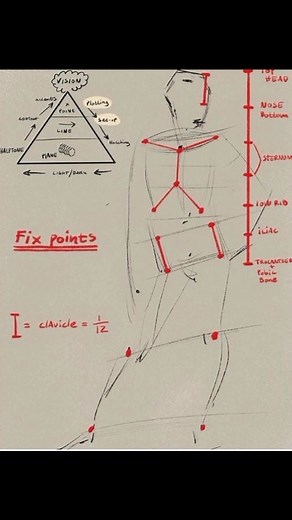 VISION
ACCENTS
A
POINT
Plotting
Set-up
CONTOUR
LINE
Hatching
HALFTONE
PLANE
LIGHT/DARK
TOP
HEAD
NOSE
Bottom
STERNUM
LOW RIB
ILIAC
TROCANTER
+
Pubic
Bone
Fix points
I = clavicle = 1/12